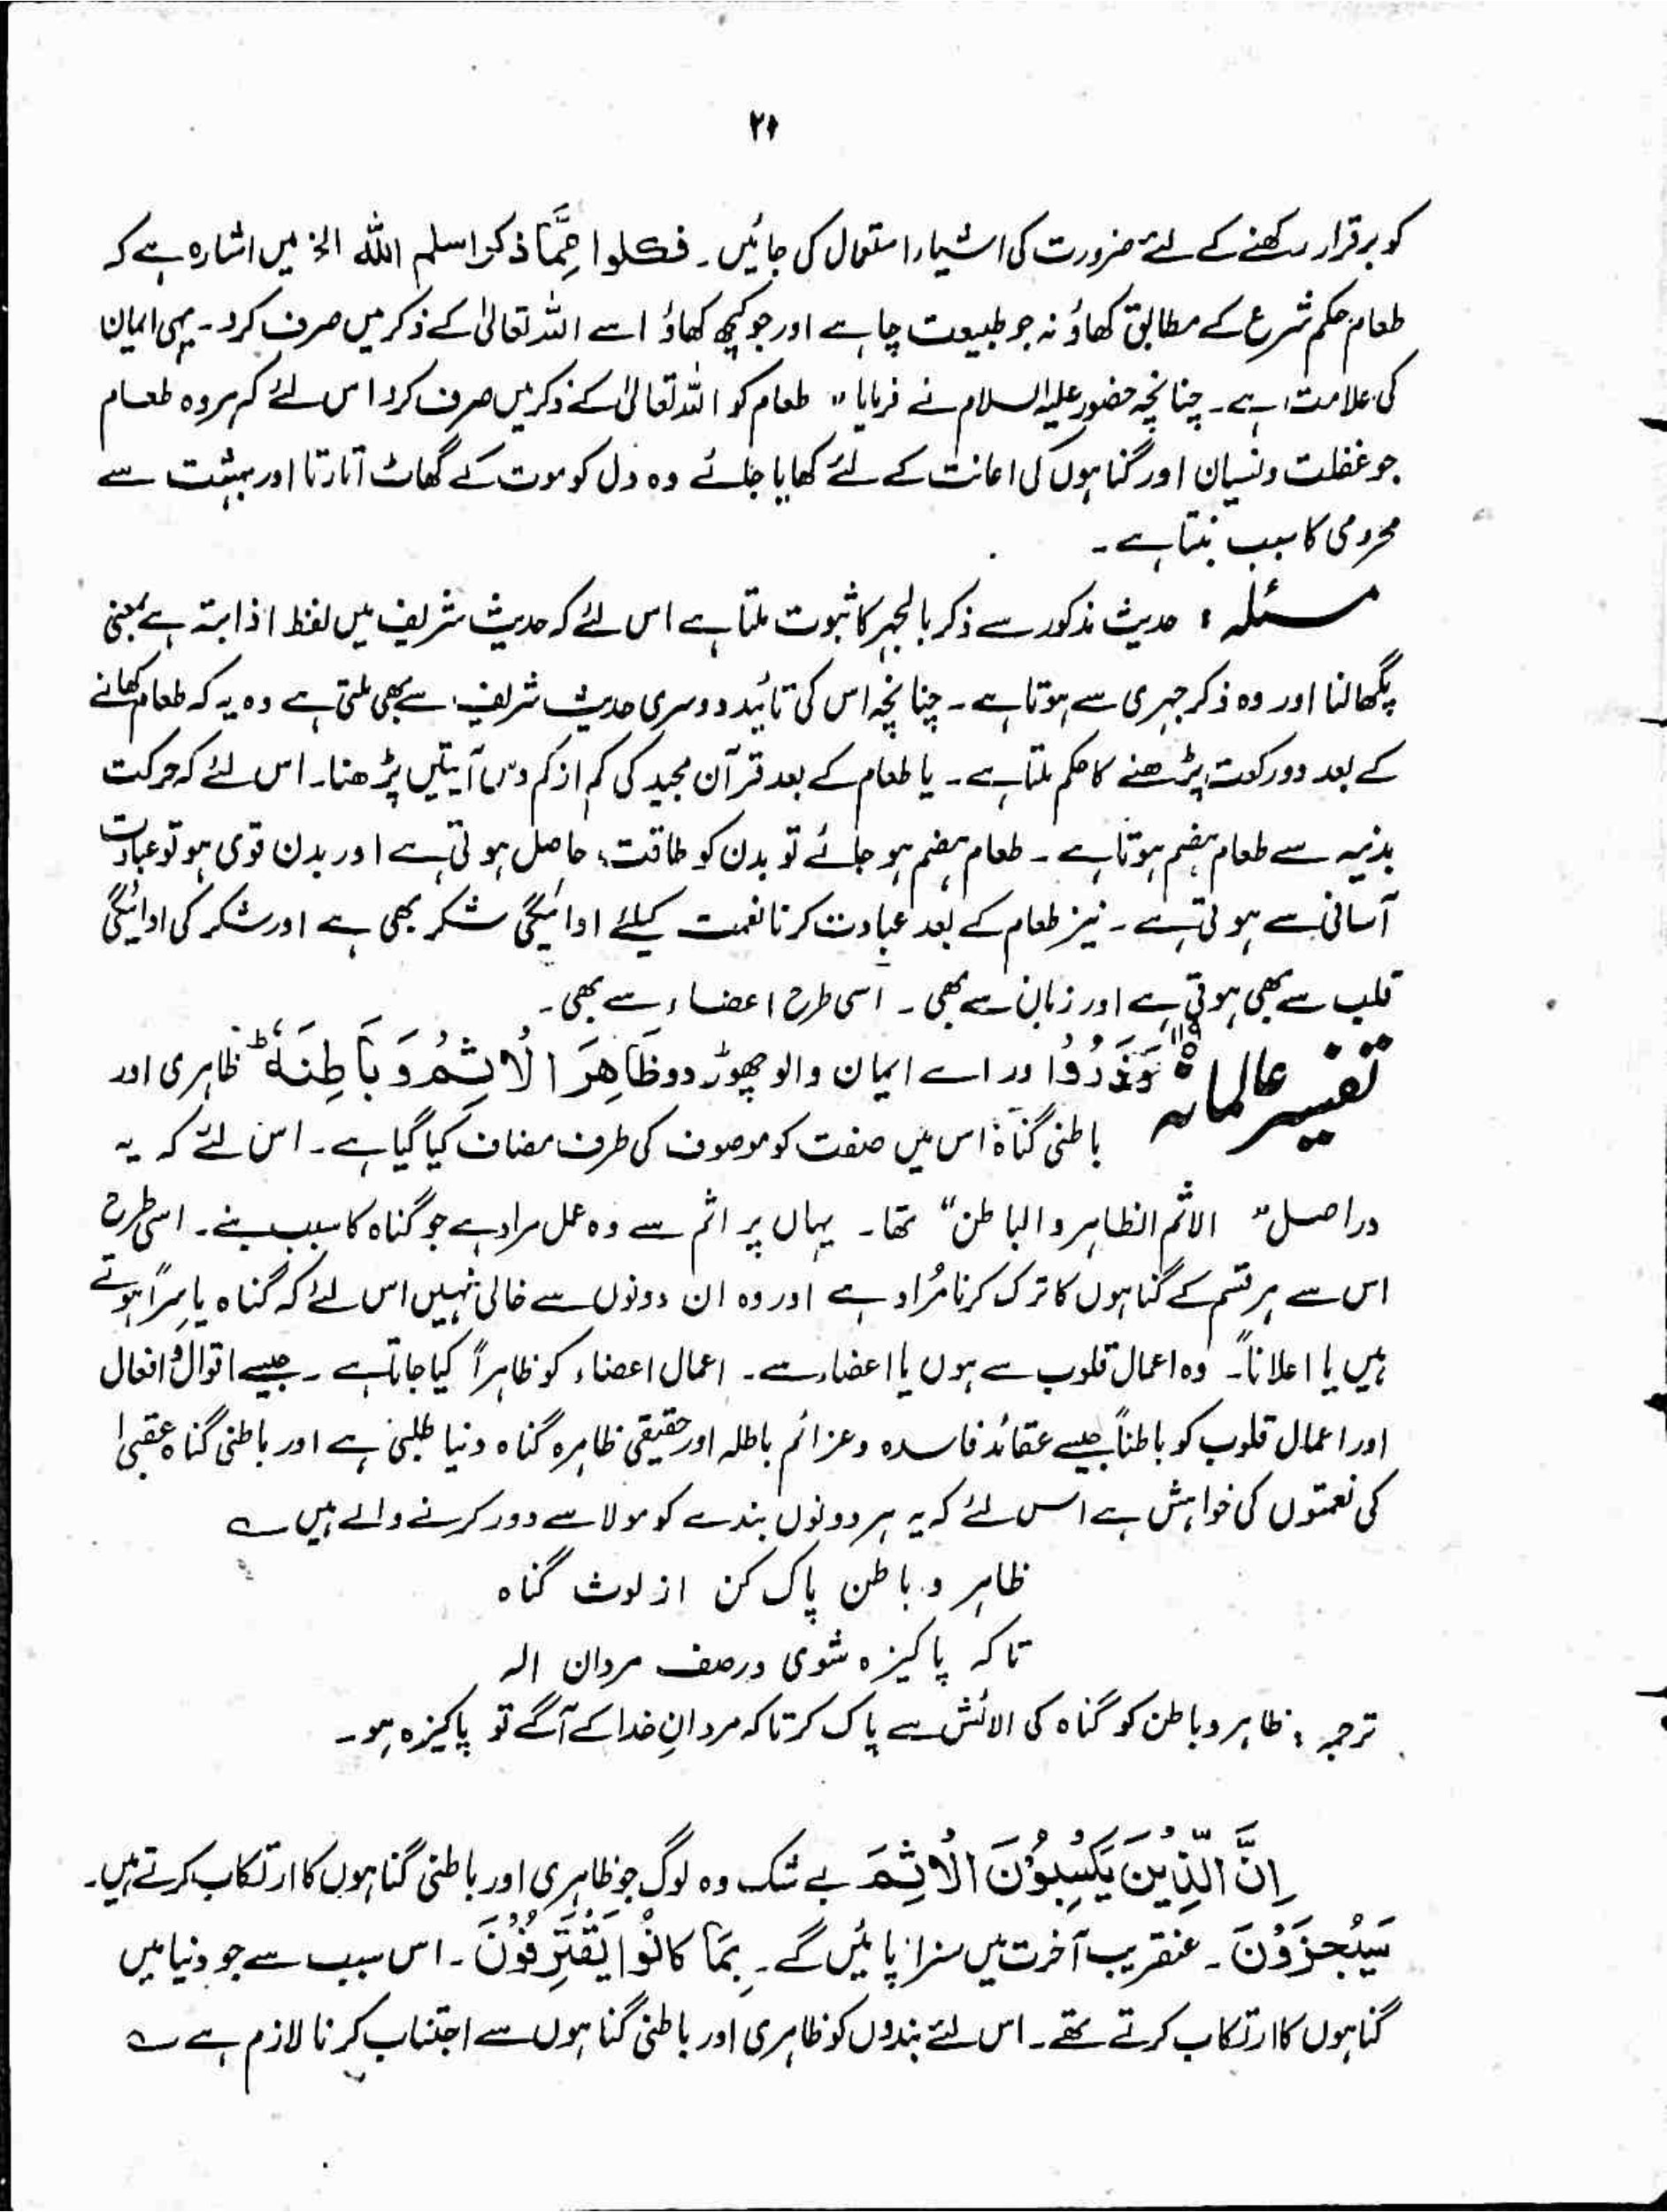 ۲۰
کو برقرار رکھنے کے لئے ضرورت کی اشیاء استعمال کی جائیں۔ فکلوا مِمَّا ذکر اسلم اللہ الخ میں اشارہ ہے کہ
طعام حکم شرع کے مطابق کھاؤ نہ جو طبیعت چاہے اور جو کچھ کھاؤ اسے اللہ تعالیٰ کے ذکر میں صرف کرو۔ یہی ایمان
کی علامت ہے۔ چنانچہ حضور علیہ السلام نے فرمایا " طعام کو اللہ تعالیٰ کے ذکر میں صرف کرو اس لئے کہ ہر وہ طعام
جو غفلت و نسیان اور گناہوں کی اعانت کے لئے کھایا جائے وہ دل کو موت کے گھاٹ اتارتا اور بہشت سے
محرومی کا سبب بنتا ہے۔
مسئلہ : حدیث مذکور سے ذکر بالجہر کا ثبوت ملتا ہے اس لئے کہ حدیث شریف میں لفظ اذابتہ ہے بمعنی
پگھالنا اور وہ ذکر جہری سے ہوتا ہے۔ چنانچہ اس کی تائید دوسری حدیث شریف سے بھی ملتی ہے وہ یہ کہ طعام کھانے
کے بعد دو رکعت پڑھنے کا حکم ملتا ہے۔ یا طعام کے بعد قرآن مجید کی کم از کم دس آیتیں پڑھنا۔ اس لئے کہ حرکت
بدنیہ سے طعام ہضم ہوتا ہے۔ طعام ہضم ہو جائے تو بدن کو طاقت حاصل ہوتی ہے اور بدن قوی ہو تو عبادت
آسانی سے ہوتی ہے۔ نیز طعام کے بعد عبادت کرنا نعمت کیلئے ادائیگی شکر بھی ہے اور شکر کی ادائیگی
قلب سے بھی ہوتی ہے اور زبان سے بھی۔ اسی طرح اعضاء سے بھی۔
تفسیر عالمانہ وَذَرُوا اور اے ایمان والو چھوڑ دو ظَاهِرَ الْاِثْمِ وَ بَاطِنَهٗ ؕ ظاہری اور
باطنی گناہ اس میں صفت کو موصوف کی طرف مضاف کیا گیا ہے۔ اس لئے کہ یہ
دراصل " الاثم الظاہر و الباطن " تھا۔ یہاں پر اثم سے وہ عمل مراد ہے جو گناہ کا سبب بنے۔ اسی طرح
اس سے ہر قسم کے گناہوں کا ترک کرنا مُراد ہے اور وہ ان دونوں سے خالی نہیں اس لئے کہ گناہ یا سِراً ہوتے
ہیں یا اعلاناً۔ وہ اعمال قلوب سے ہوں یا اعضاء سے۔ اعمال اعضاء کو ظاہراً کیا جاتا ہے۔ جیسے اقوال و افعال
اور اعمال قلوب کو باطناً جیسے عقائد فاسدہ و عزائم باطلہ اور حقیقی ظاہرہ گناہ دنیا طلبی ہے اور باطنی گناہ عقبیٰ
کی نعمتوں کی خواہش ہے اس لئے کہ یہ ہر دونوں بندے کو مولا سے دور کرنے والے ہیں ؎
ظاہر و باطن پاک کن از لوث گناہ
تاکہ پاکیزہ شوی در صف مردان الہ
ترجمہ : ظاہر و باطن کو گناہ کی الائش سے پاک کر تاکہ مردانِ خدا کے آگے تو پاکیزہ ہو۔
اِنَّ الَّذِيْنَ يَكْسِبُوْنَ الْاِثْمَ بے شک وہ لوگ جو ظاہری اور باطنی گناہوں کا ارتکاب کرتے ہیں۔
سَيُجْزَوْنَ ۔ عنقریب آخرت میں سزا پائیں گے۔ بِمَا كَانُوْا يَقْتَرِفُوْنَ ۔ اس سبب سے جو دنیا میں
گناہوں کا ارتکاب کرتے تھے۔ اس لئے بندوں کو ظاہری اور باطنی گناہوں سے اجتناب کرنا لازم ہے ؎